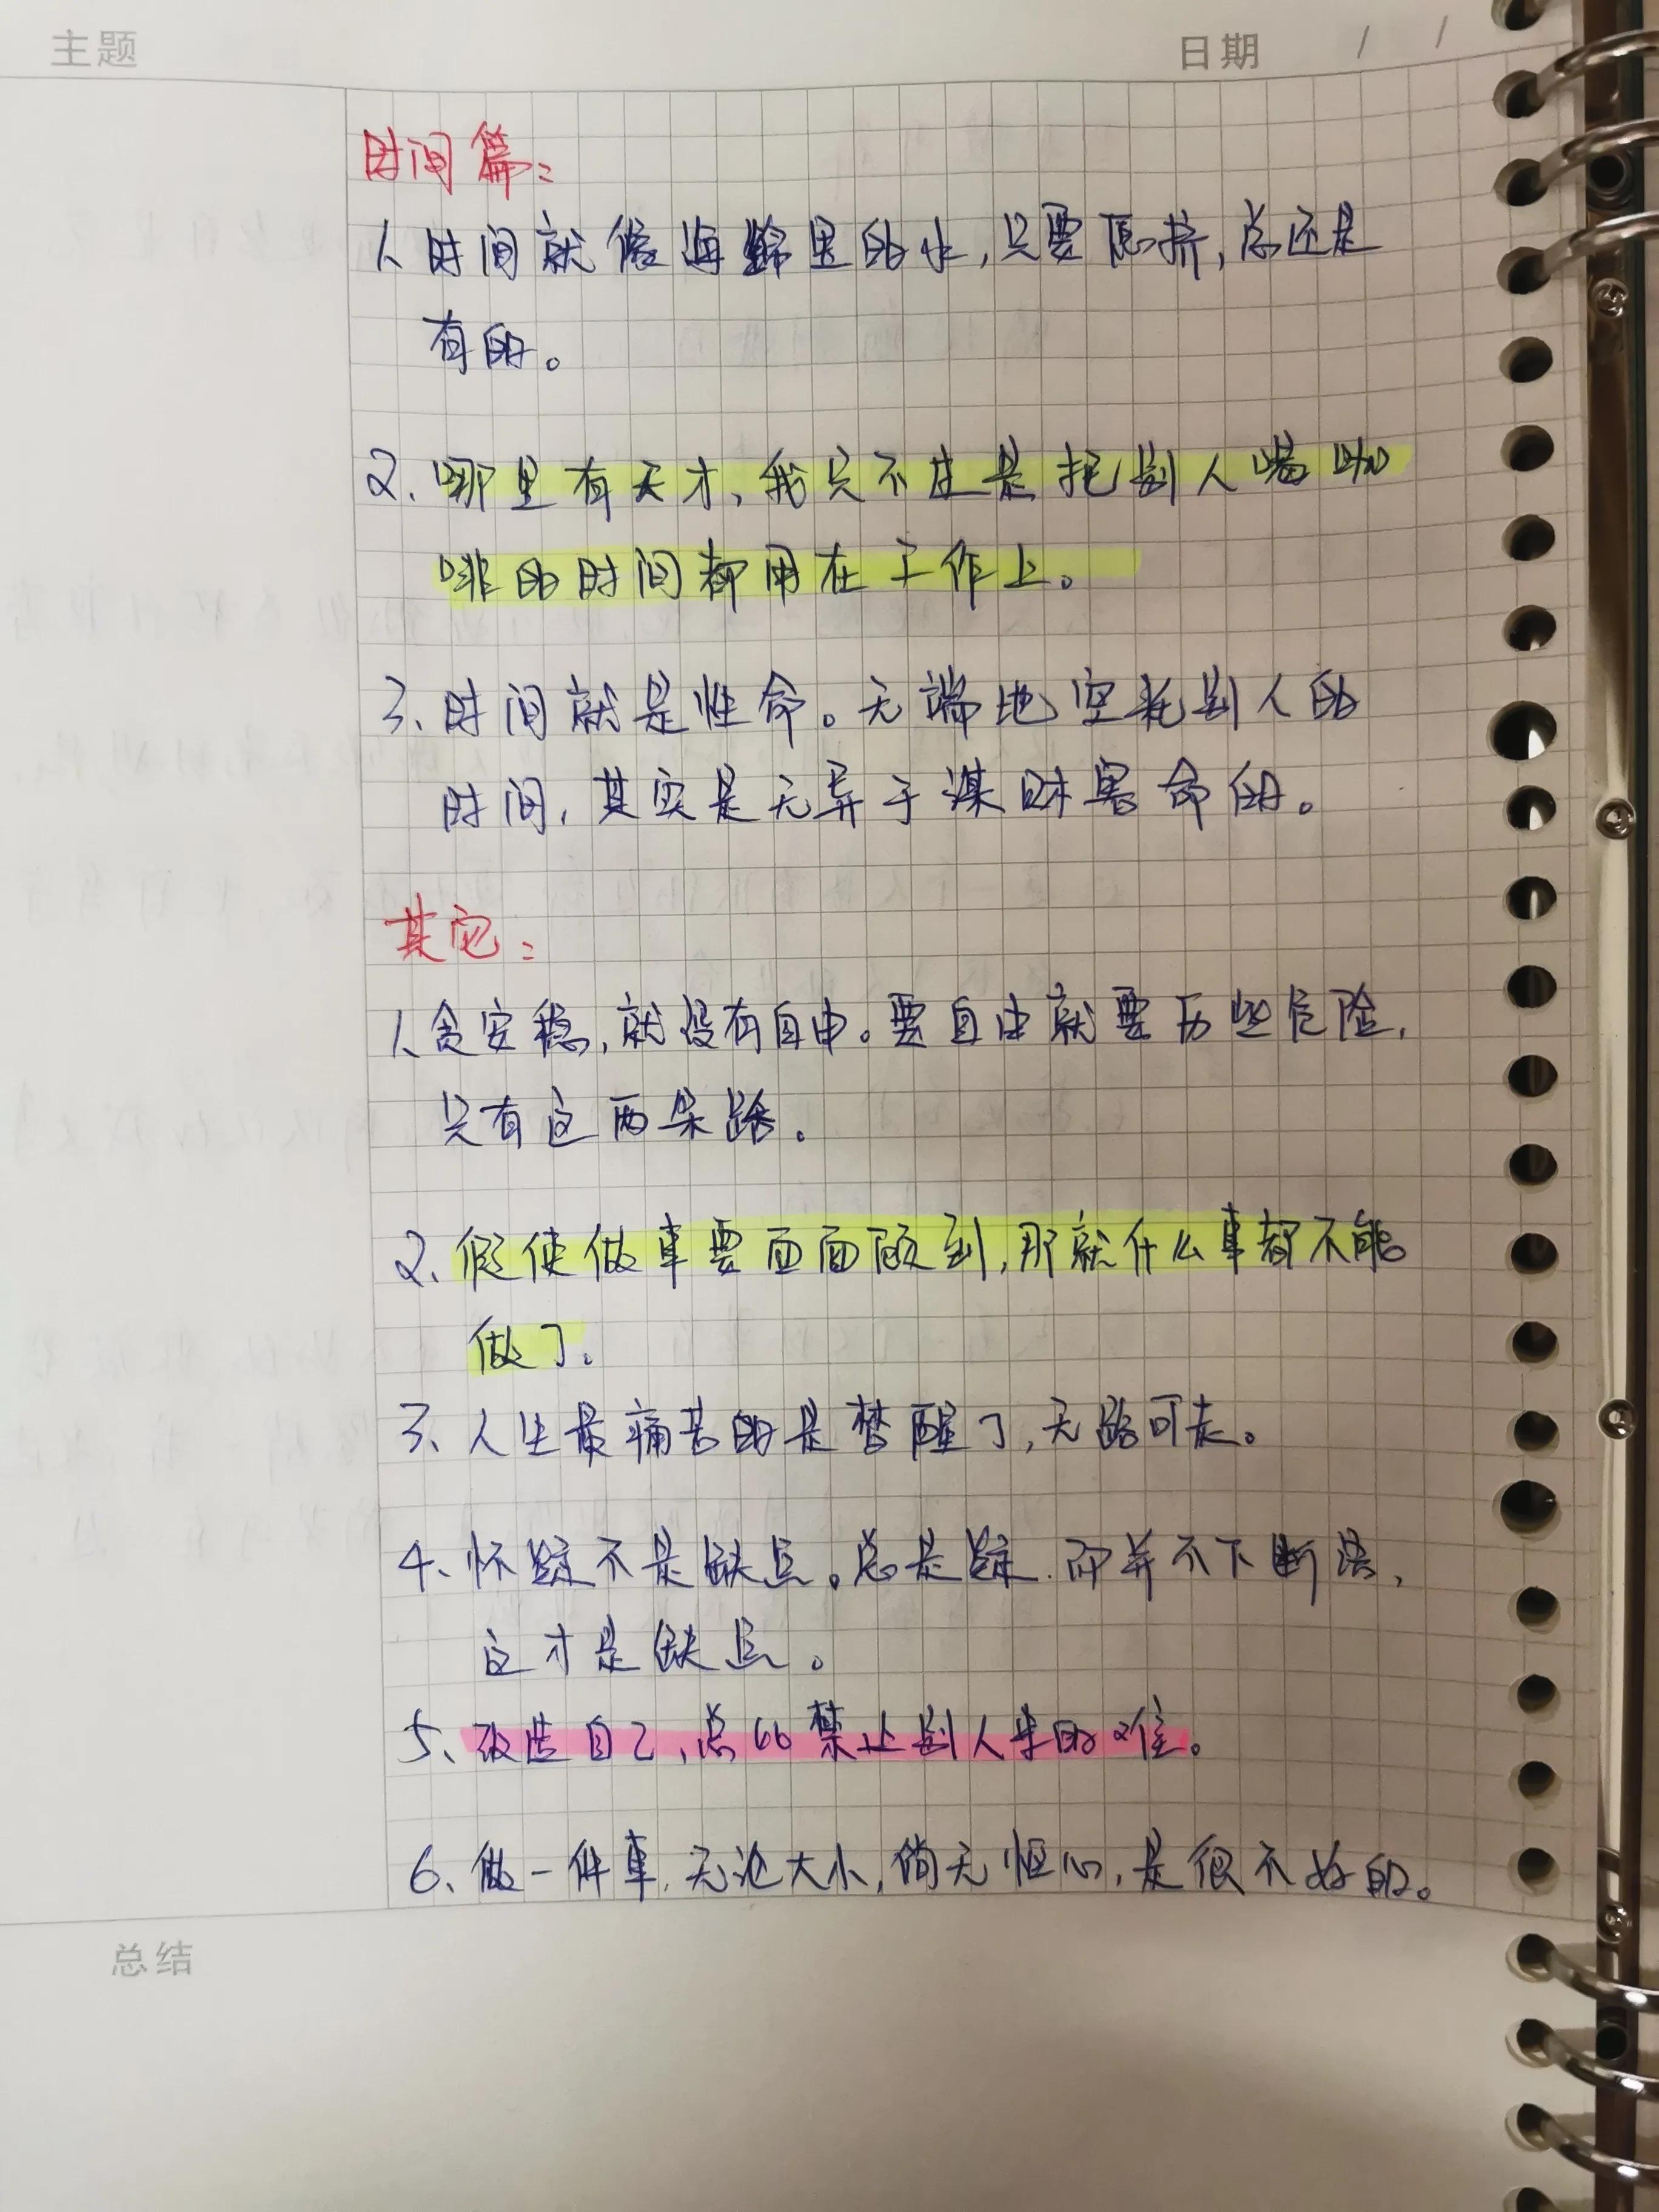 主题
日期 / /
时间篇:
1、时间就像海绵里的水,只要愿挤,总还是
有的。
2、哪里有天才,我只不过是把别人喝咖
啡的时间都用在工作上。
3、时间就是性命。无端地空耗别人的
时间,其实是无异于谋财害命的。
其它:
1、贪安稳,就没有自由。要自由就要历些危险,
只有这两条路。
2、假使做事要面面顾到,那就什么事都不能
做了。
3、人生最痛苦的是梦醒了,无路可走。
4、怀疑不是缺点。总是疑,而并不下断语,
这才是缺点。
5、改造自己,总比禁止别人来的难。
6、做一件事,无论大小,倘无恒心,是很不好的。
总结